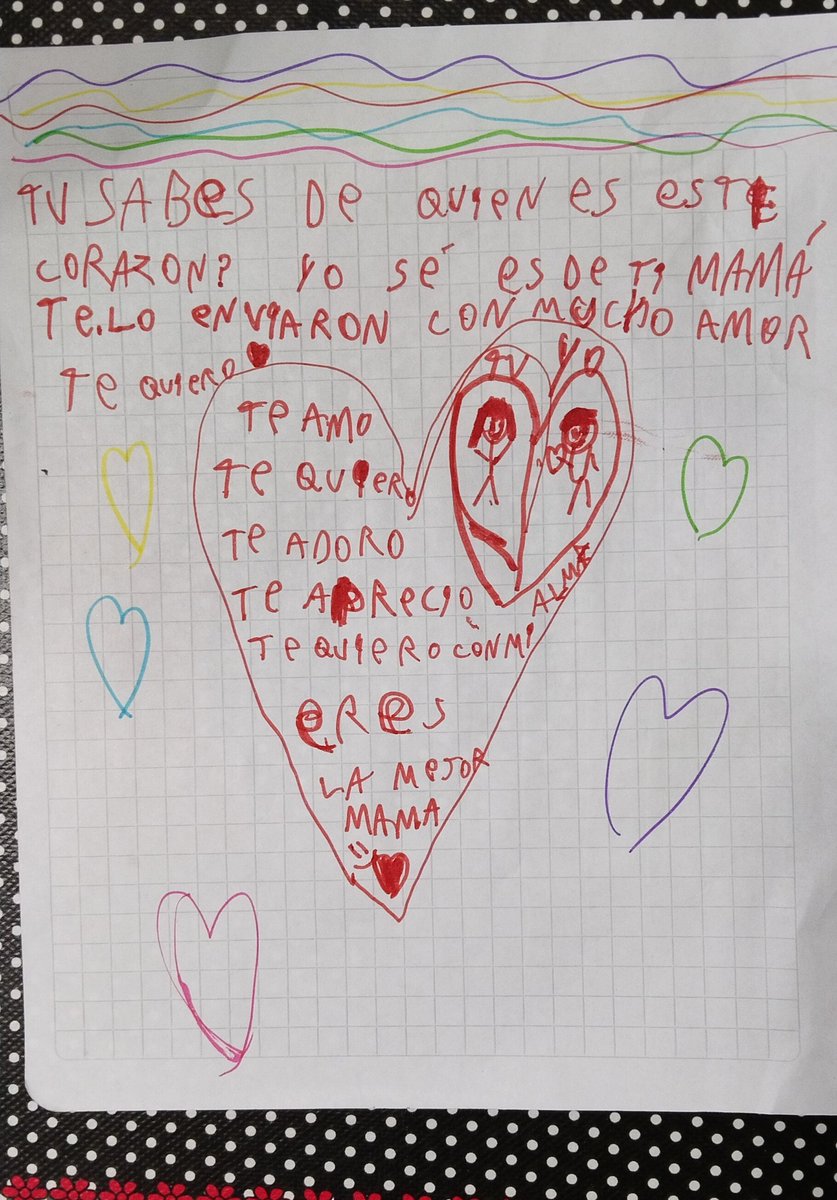 TU SABeS De QUIEN es esTE
CORAZON? YO sé es De Ti MAMÁ
Te.LO eNVIARON CON MUCHO AMOR
Te QUIERO
TU YO
Te AMO
Te QUIeRo
Te ADORO
Te APRECIO
Te QUIERO CON MI ALMA
eRes
LA MeJOR
MAMA